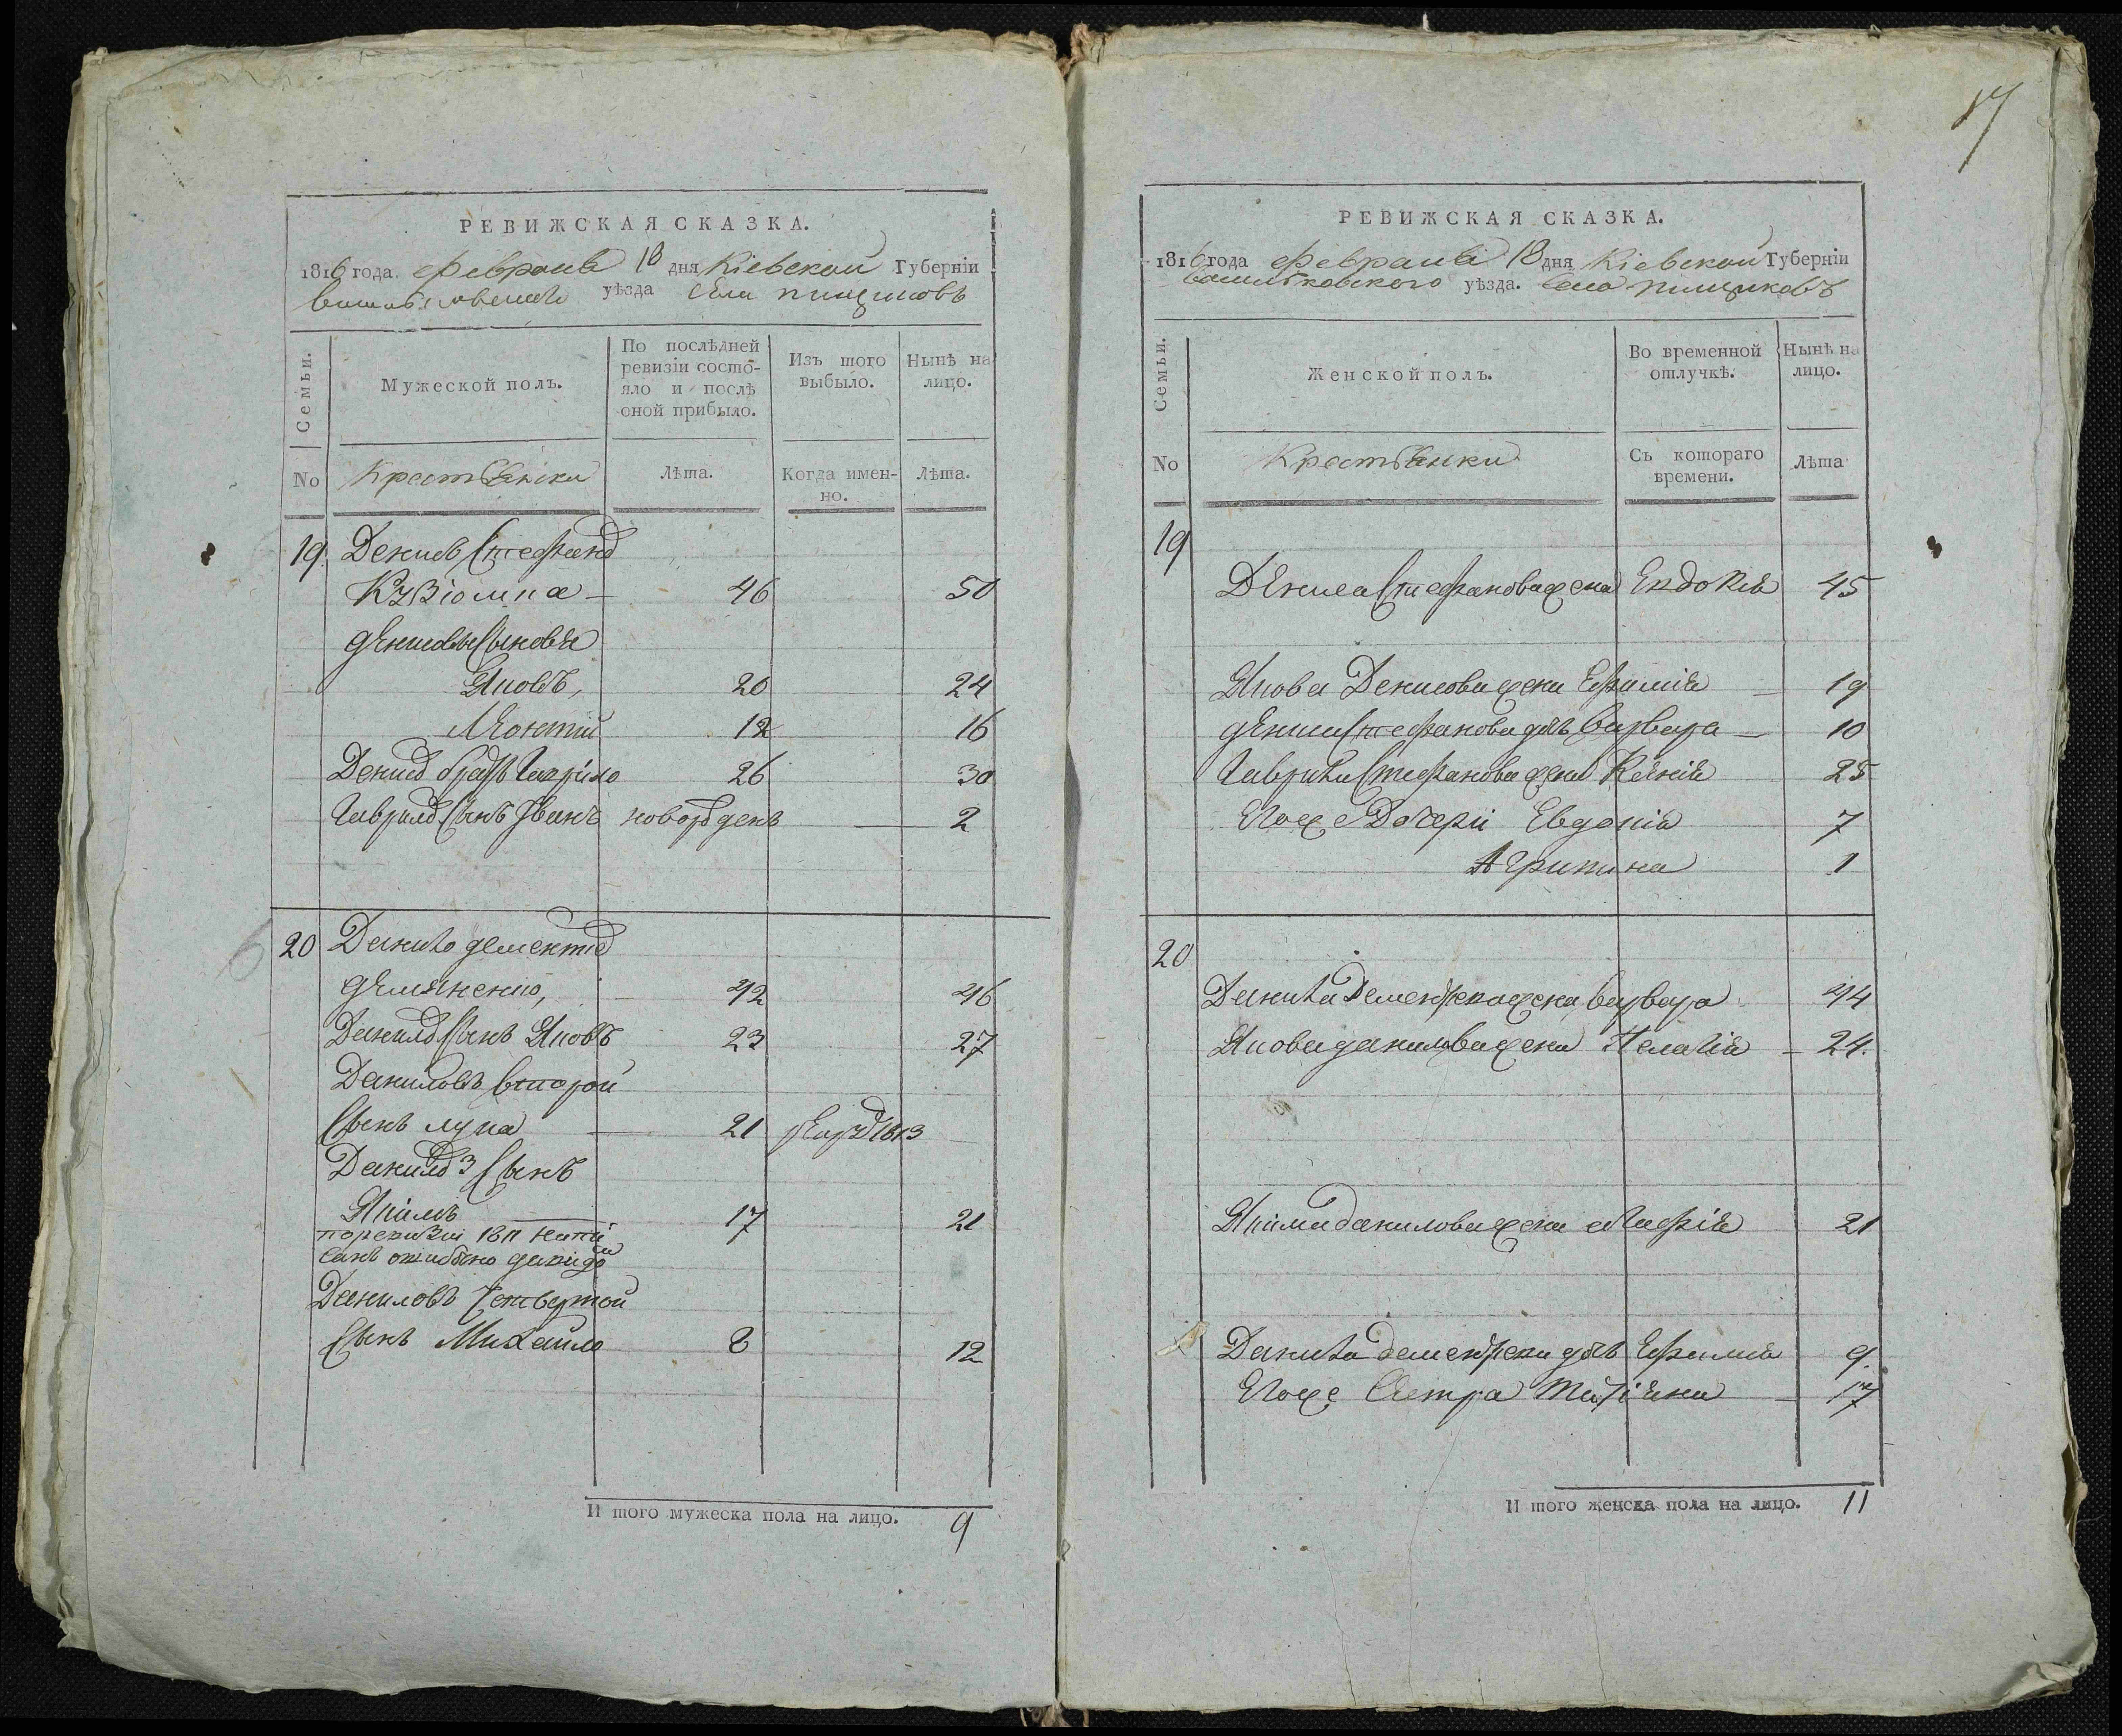 РЕВИЖСКАЯ СКАЗКА.
1816 года Февраля 18 дня Кіевской Губерніи
уѣзда Села Пищиковъ
Семьи.
Мужеской полъ.
По послѣдней ревизіи состояло и послѣ оной прибыло.
Изъ того выбыло.
Нынѣ на лицо.
No
Крестьянски
Лѣта.
Когда именно.
Лѣта.
19. Денисъ Стефановъ
46 50
Денисовы Сыновья
Яковъ, 20 24
Леонтій 12 16
Денисовъ братъ Гаврило 26 30
Гавриловъ Сынъ Иванъ новорожденъ 2
20 Данило Дементіевъ
Демяненко, 42 46
Даниловъ Сынъ Яковъ 23 27
Даниловъ второй
Сынъ Лука 21 1813
Даниловъ 3 Сынъ
Якимъ 17 21
по ревизіи 1811 напи
санъ ошибкно
Даниловъ Четвертой
Сынъ Михайло 8 12
И того мужеска пола на лицо. 9
17
РЕВИЖСКАЯ СКАЗКА.
1816 года Февраля 18 дня Кіевской Губерніи
Васильковского уѣзда. Села Пищиковъ
Семьи.
Женской полъ.
Во временной отлучкѣ.
Нынѣ на лицо.
No
Крестьянки
Съ котораго времени.
Лѣта
19
Дениса Стефанова жена Евдокія 45
Якова Денисова жена Ефимія 19
Дениса Стефанова дочь Варвара 10
Гаврила Стефанова жена Ксенія 25
Егоже Дочери Евдокія 7
Агрипина 1
20
Данила Дементіева жена Варвара 44
Якова Данилова жена Пелагія 24.
Якима Данилова жена Марія 21
Данила Дементіева дочь Ефимія 9
Егоже Сестра Татіяна 17
И того женска пола на лицо. 11